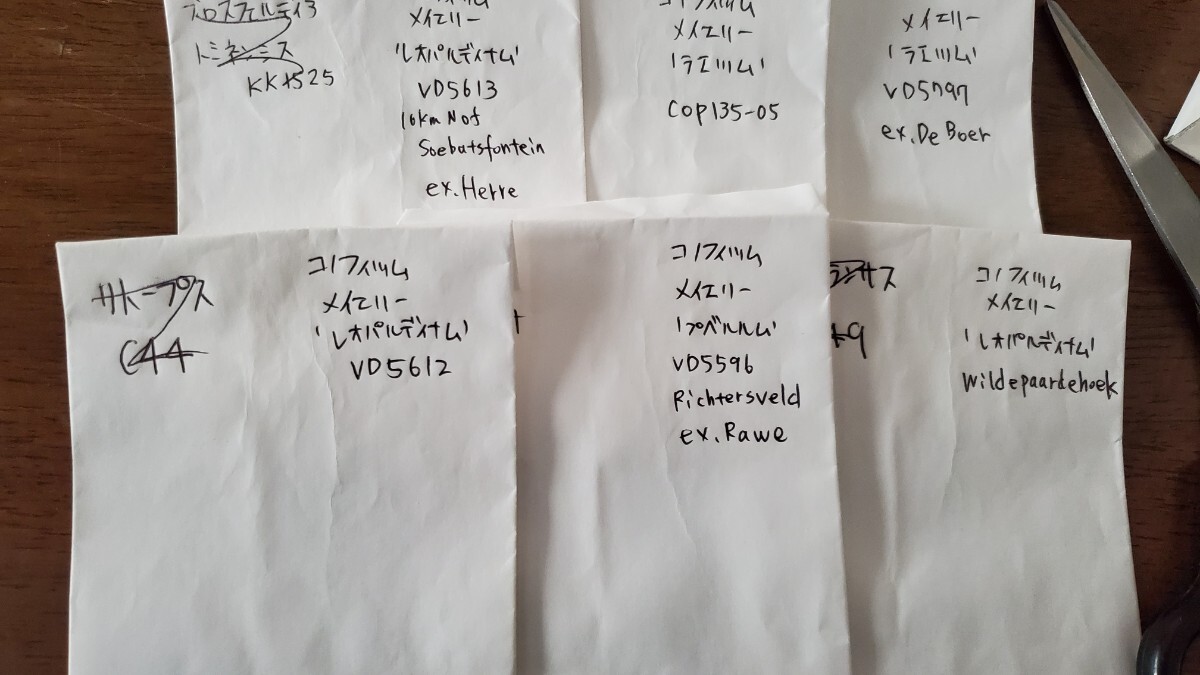 メイエリー
'レオパルディナム'
VD5613
16km N of
Soebatsfontein
ex.Herre
コノフィツム
メイエリー
'ラエツム'
Cop135-05
メイエリー
'ラエツム'
VD5797
ex.De Boer
コノフィツム
メイエリー
'レオパルディナム'
VD5612
コノフィツム
メイエリー
'プベルルム'
VD5596
Richtersveld
ex.Rawe
コノフィツム
メイエリー
'レオパルディナム'
Wildepaardehoek